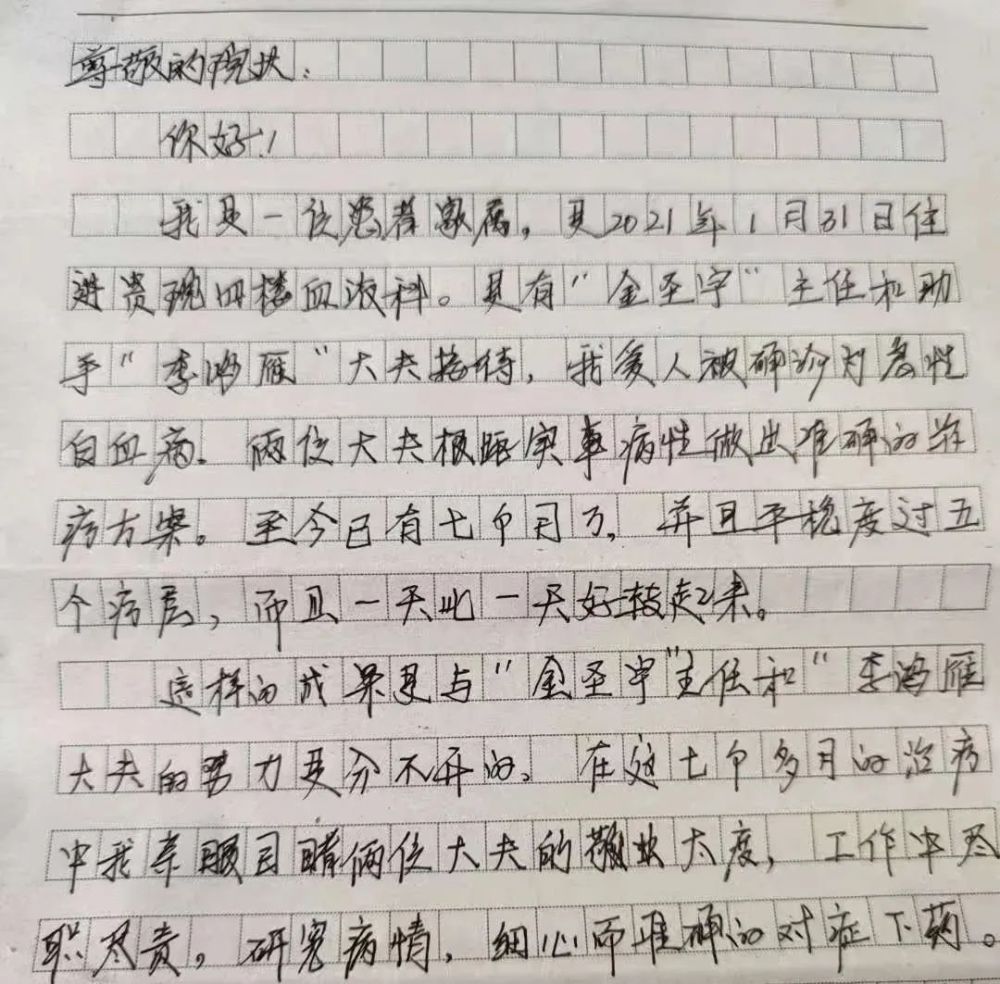 尊敬的院长：
你好！
我是一位患者家属，是2021年1月31日住
进贵院四楼血液科。是有"金圣宇"主任和助
手"李鸿雁"大夫接待，我爱人被确诊为急性
白血病。俩位大夫根据实事病性做出准确的治
疗方案。至今已有七个月了，并且平稳度过五
个疗层，而且一天比一天好转起来。
这样的成果是与"金圣宇"主任和"李鸿雁
大夫的努力是分不开的。在这七个多月的治疗
中我亲眼目睹俩位大夫的敬业太度，工作中尽
职尽责，研究病情，细心而准确的对症下药。